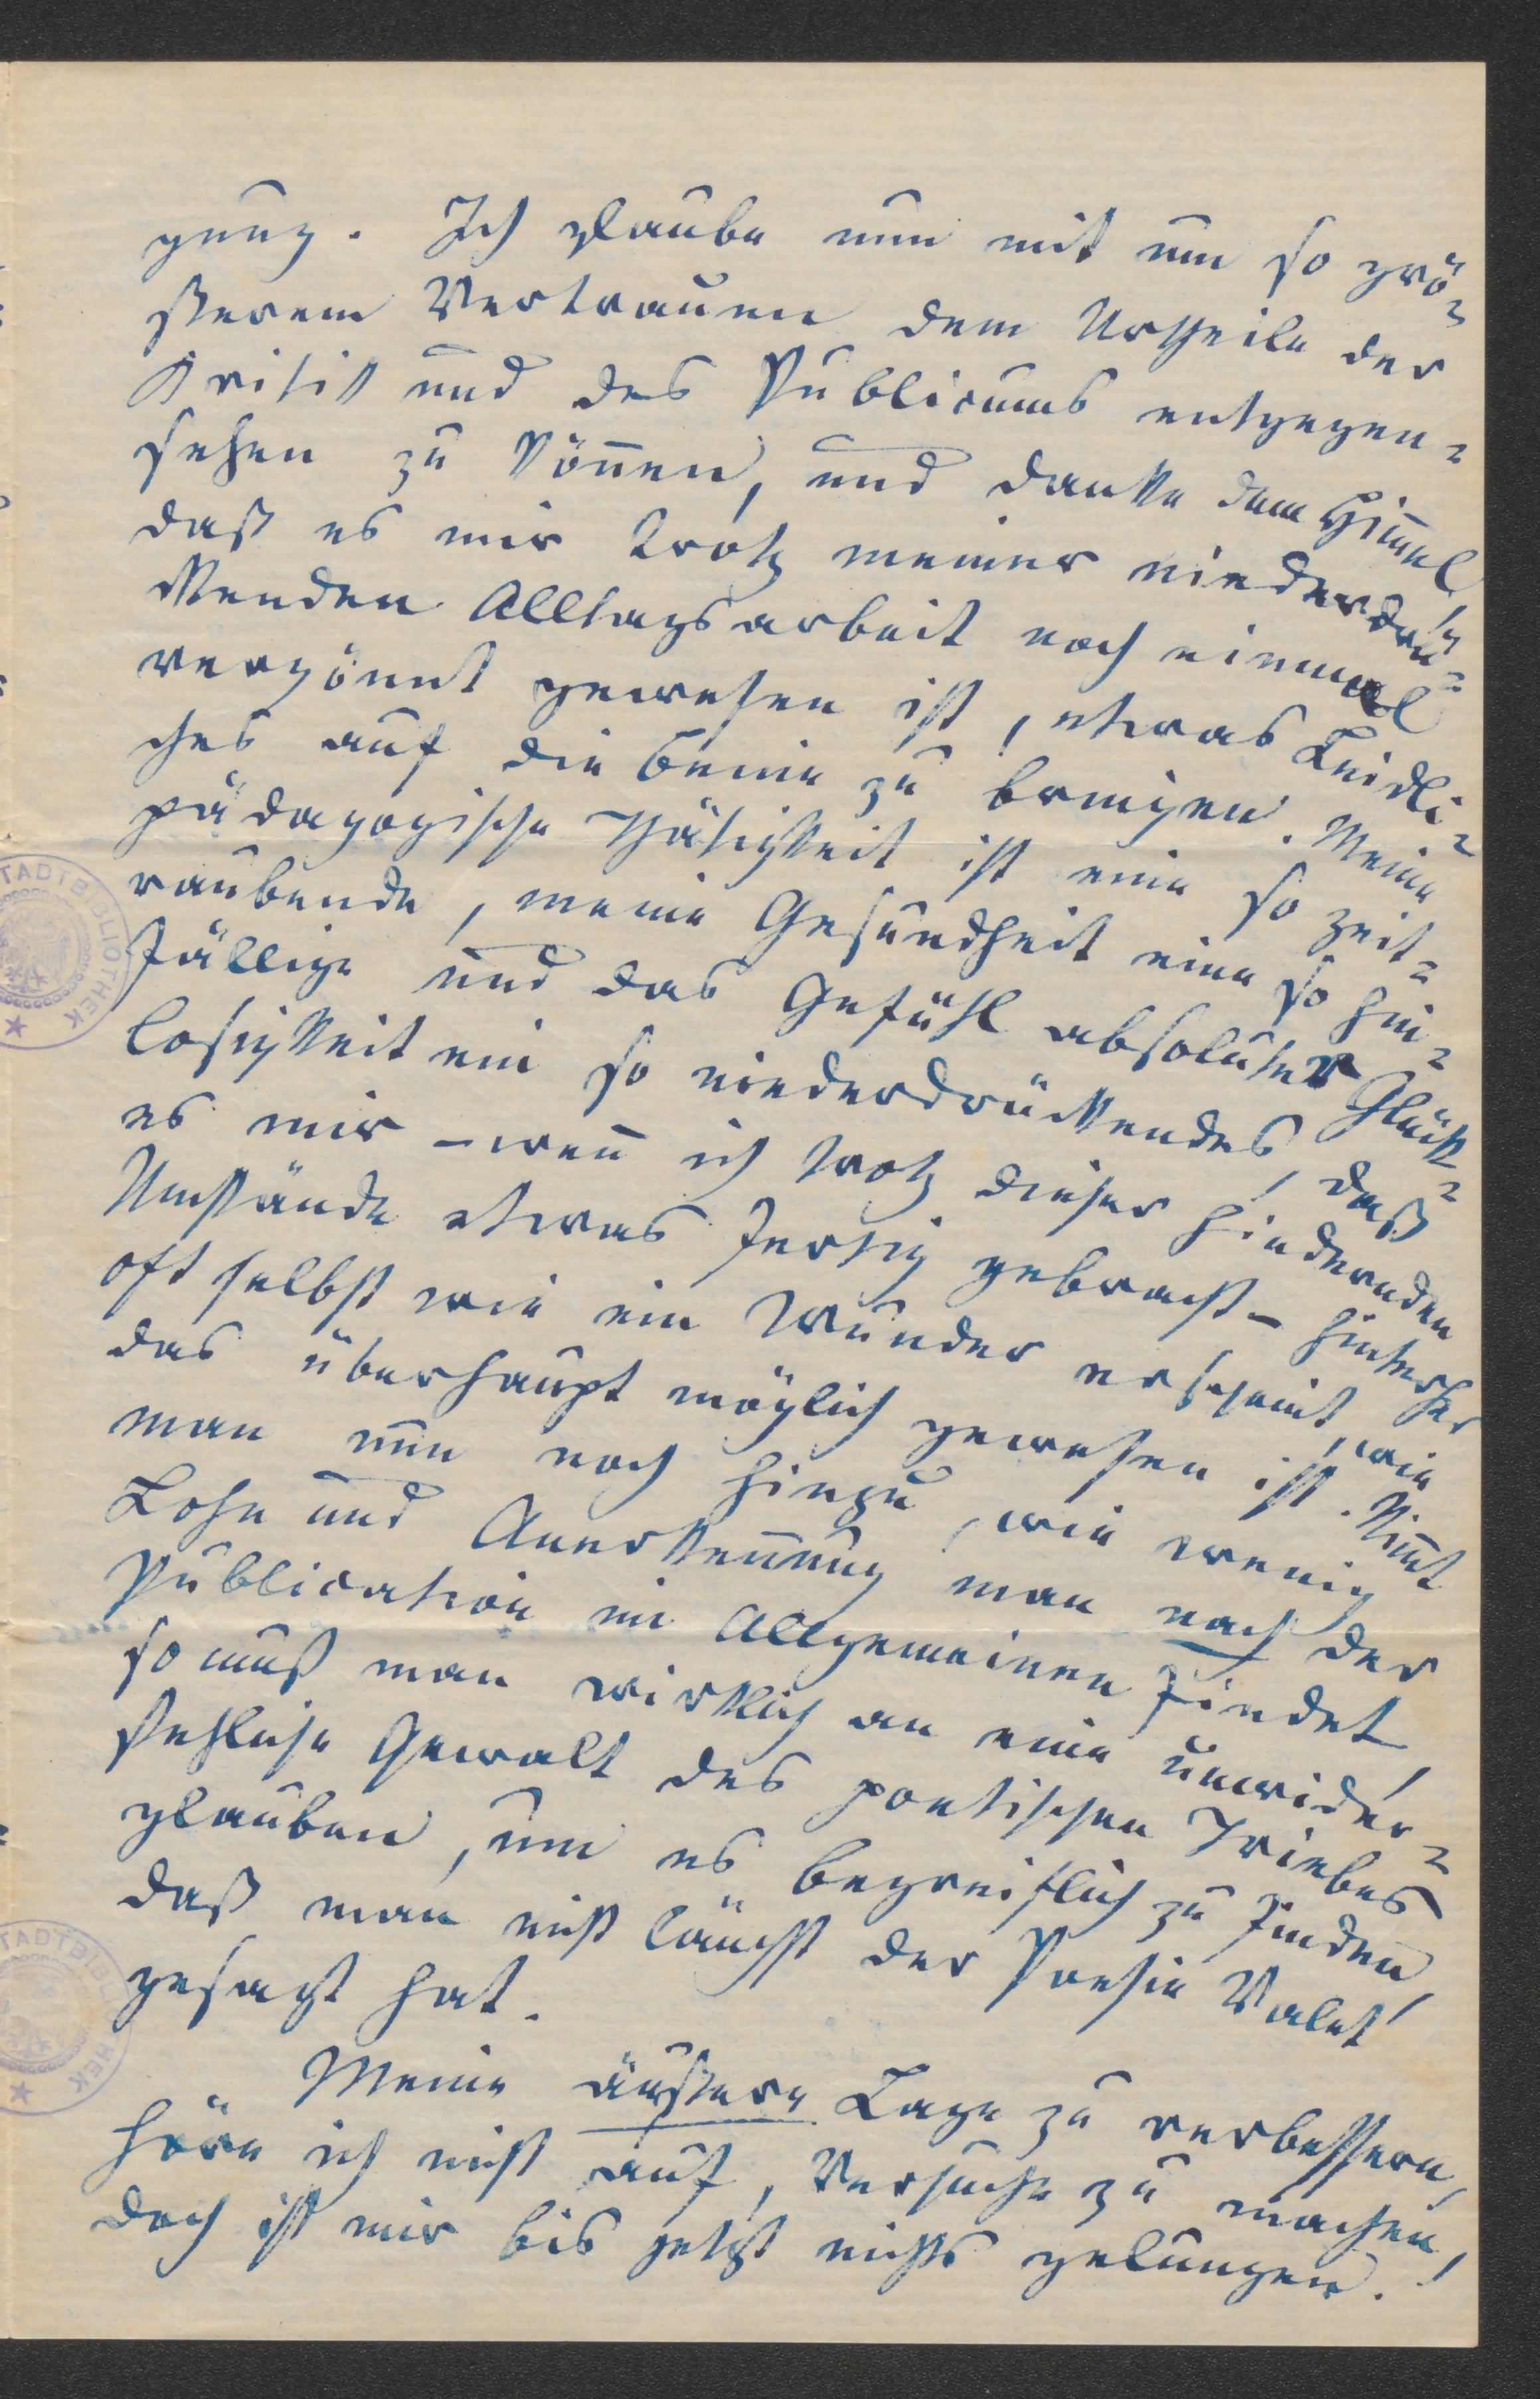 gung. Ich glaube nun mit um so grö-
ßerem Vertrauen dem Urtheile der
Kritik und des Publicums entgegen-
sehen zu können, und danke dem Himmel,
daß es mir trotz meiner niederdrü-
ckenden Alltagsarbeit noch einmal
vergönnt gewesen ist, etwas Leidli-
ches auf die Beine zu bringen. Meine
pädagogische Thätigkeit ist eine so zeit-
raubende, meine Gesundheit eine so hin-
fällige und das Gefühl absoluter Glück-
losigkeit ein so niederdrückendes, daß
es mir – wenn ich trotz dieser hindernden
Umstände etwas fertig gebracht – hinterher
oft selbst wie ein Wunder erscheint, wie
das überhaupt möglich gewesen ist. Nimmt
man nun noch hinzu, wie wenig
Lohn und Anerkennung man nach der
Publication im Allgemeinen findet,
so muß man wirklich an eine unwider-
stehliche Gewalt des poetischen Triebes
glauben, um es begreiflich zu finden,
daß man nicht längst der Poesie Valet
gesagt hat.
Meine äußere Lage zu verbessern,
höre ich nicht auf, Versuche zu machen,
doch ist mir bis jetzt nichts gelungen!
STADTBIBLIOTHEK
STADTBIBLIOTHEK